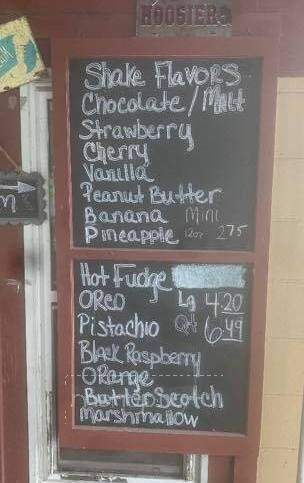 HOOSIERS
Shake Flavors
Chocolate/Malt
Strawberry
Cherry
Vanilla
Peanut Butter
Banana Mini
Pineapple 12oz 2.75
Hot Fudge
OReo Lg 4.20
Pistachio Qt 6.49
Black Raspberry
ORange
ButterScotch
marshmallow